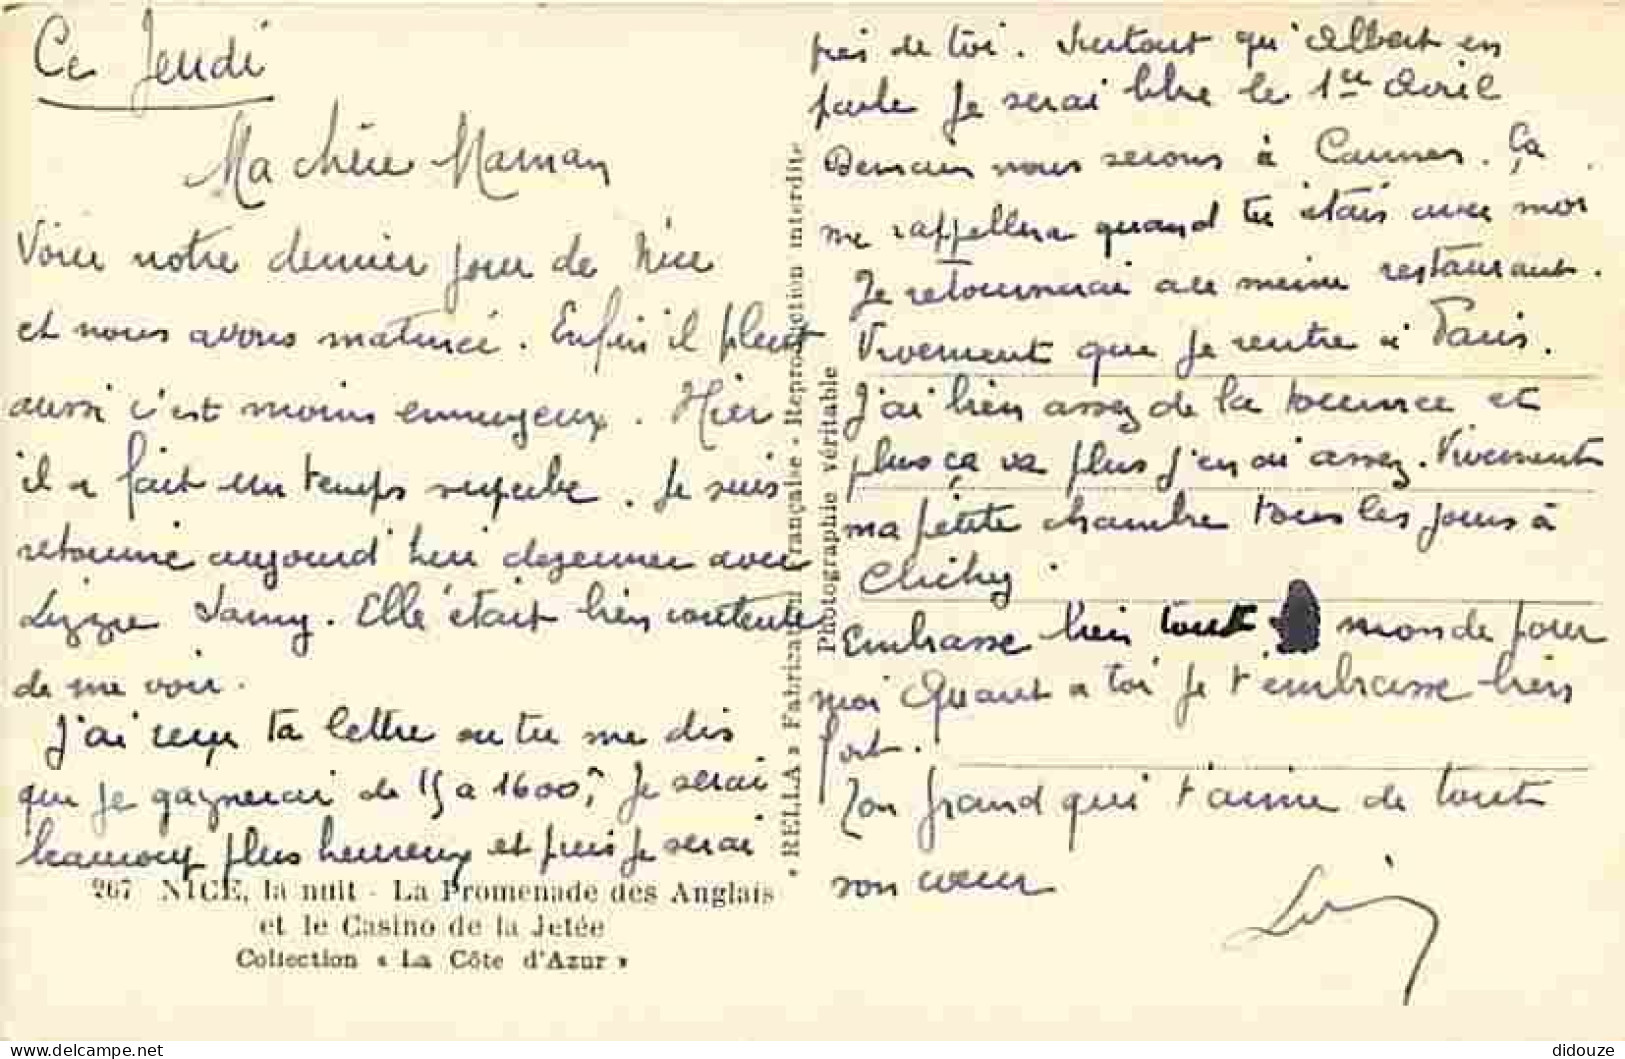 Ce Jeudi
Ma chère Maman
Voici notre dernier jour de Nice
et nous avons matinée. Enfin il pleut
aussi c'est moins ennuyeux. Hier
il a fait un temps superbe. Je suis
retourné aujourd'hui dejeuner avec
Lizzie Samy. Elle était bien contente
de me voir.
J'ai reçu ta lettre ou tu me dis
que je gagnerai de 15 a 1600, Je serai
beaucoup plus heureux et puis je serai
267 NICE, la nuit - La Promenade des Anglais
et le Casino de la Jetée
Collection « La Côte d'Azur »
« RELLA » Fabrication Française - Reproduction interdite
Photographie véritable
près de toi. Surtout qu'Albert en
parle Je serai libre le 1er Avril
Demain nous serons à Cannes. Ça
me rappellera quand tu étais avec moi
Je retournerai au meme restaurant.
Vivement que je rentre à Paris.
J'ai bien assez de la tournée et
plus ça va plus j'en ai assez. Vivement
ma petite chambre tous les jours à
Clichy.
Embrasse bien tout monde pour
moi Quant a toi je t'embrasse bien
fort.
Ton grand qui t'aime de tout
son cœur
didouze